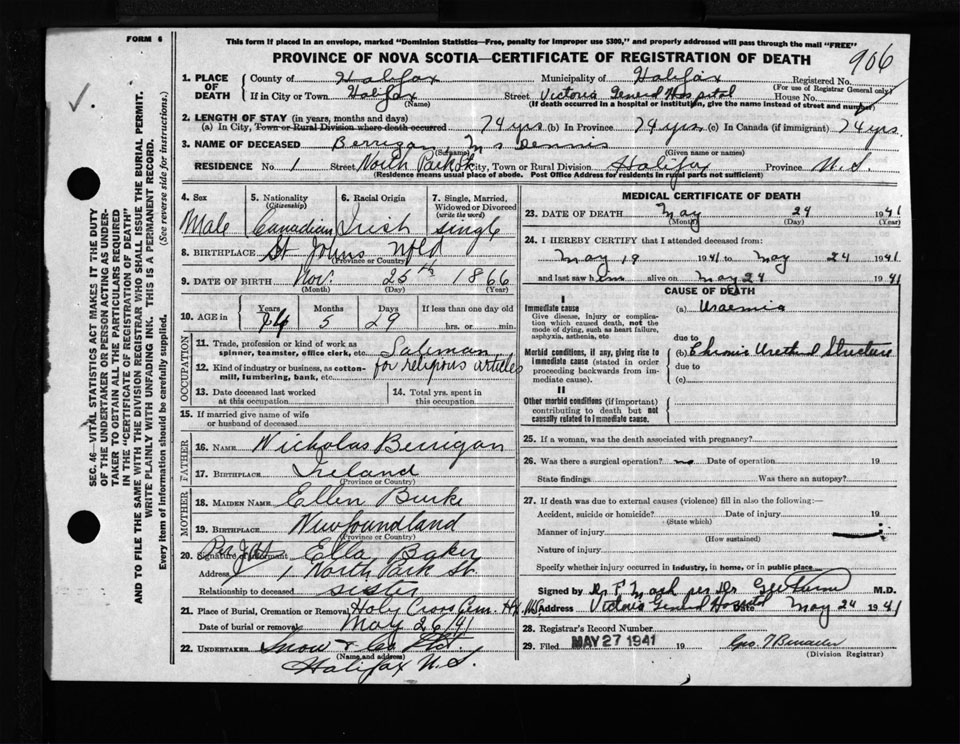 FORM 6
This form if placed in an envelope, marked "Dominion Statistics—Free, penalty for improper use $300," and properly addressed will pass through the mail "FREE"
906
PROVINCE OF NOVA SCOTIA—CERTIFICATE OF REGISTRATION OF DEATH
1. PLACE OF DEATH County of Halifax Municipality of Halifax Registered No.
(For use of Registrar General only)
If in City or Town Halifax Street Victoria General Hospital House No.
(Name) (If death occurred in a hospital or institution, give the name instead of street and number)
2. LENGTH OF STAY (in years, months and days)
(a) In City, Town or Rural Division where death occurred 74 yrs (b) In Province 74 yrs. (c) In Canada (if immigrant) 74 yrs.
3. NAME OF DECEASED Berrigan, Dennis
(Surname) (Given name or names)
RESIDENCE No. 1 Street North Park St City, Town or Rural Division Halifax Province N.S.
(Residence means usual place of abode. Post Office Address for residents in rural parts not sufficient)
4. Sex Male
5. Nationality (Citizenship) Canadian
6. Racial Origin Irish
7. Single, Married, Widowed or Divorced (write the word) single
8. BIRTHPLACE St Johns Nfld
(Province or Country)
9. DATE OF BIRTH Nov. 25th 1866
(Month) (Day) (Year)
10. AGE in Years 74 Months 5 Days 29 If less than one day old
hrs. or min.
OCCUPATION
11. Trade, profession or kind of work as spinner, teamster, office clerk, etc. Saleman
12. Kind of industry or business, as cotton-mill, lumbering, bank, etc. for religious articles
13. Date deceased last worked at this occupation
14. Total yrs. spent in this occupation
15. If married give name of wife or husband of deceased
FATHER
16. NAME Nicholas Berrigan
17. BIRTHPLACE Ireland
(Province or Country)
MOTHER
18. MAIDEN NAME Ellen Burke
19. BIRTHPLACE Newfoundland
(Province or Country)
20. Signature of informant Ella Baker
Address 1 North Park St.
Relationship to deceased sister
21. Place of Burial, Cremation or Removal Holy Cross Cem. Hfx N.S.
Date of burial or removal May 26/41
22. UNDERTAKER Snow & Co Ltd.
(Name and address)
Halifax N.S.
MEDICAL CERTIFICATE OF DEATH
23. DATE OF DEATH May 24 1941
(Month) (Day) (Year)
24. I HEREBY CERTIFY that I attended deceased from:
May 19 1941 to May 24 1941
and last saw him alive on May 24 1941
CAUSE OF DEATH
I
Immediate cause (a) Uraemia
Give disease, injury or complication which caused death, not the mode of dying, such as heart failure, asphyxia, asthenia, etc
due to
Morbid conditions, if any, giving rise to immediate cause (stated in order proceeding backwards from immediate cause).
(b) Chronic Urethral Stricture
due to
(c)
II
Other morbid conditions (if important) contributing to death but not causally related to immediate cause.
25. If a woman, was the death associated with pregnancy?
26. Was there a surgical operation? no Date of operation 19
State findings Was there an autopsy?
27. If death was due to external causes (violence) fill in also the following:—
Accident, suicide or homicide? Date of injury 19
(State which)
Manner of injury
(How sustained)
Nature of injury
Specify whether injury occurred in industry, in home, or in public place
Signed by Dr. F. Mack per Dr. M.D.
Address Victoria General Hospital Date May 24 1941
28. Registrar's Record Number
29. Filed MAY 27 1941 19
(Division Registrar)
SEC. 46—VITAL STATISTICS ACT MAKES IT THE DUTY
OF THE UNDERTAKER OR PERSON ACTING AS UNDER-
TAKER TO OBTAIN ALL THE PARTICULARS REQUIRED
IN THE "CERTIFICATE OF REGISTRATION OF DEATH"
AND TO FILE THE SAME WITH THE DIVISION REGISTRAR WHO SHALL ISSUE THE BURIAL PERMIT.
WRITE PLAINLY WITH UNFADING INK. THIS IS A PERMANENT RECORD.
Every item of information should be carefully supplied. (See reverse side for instructions.)